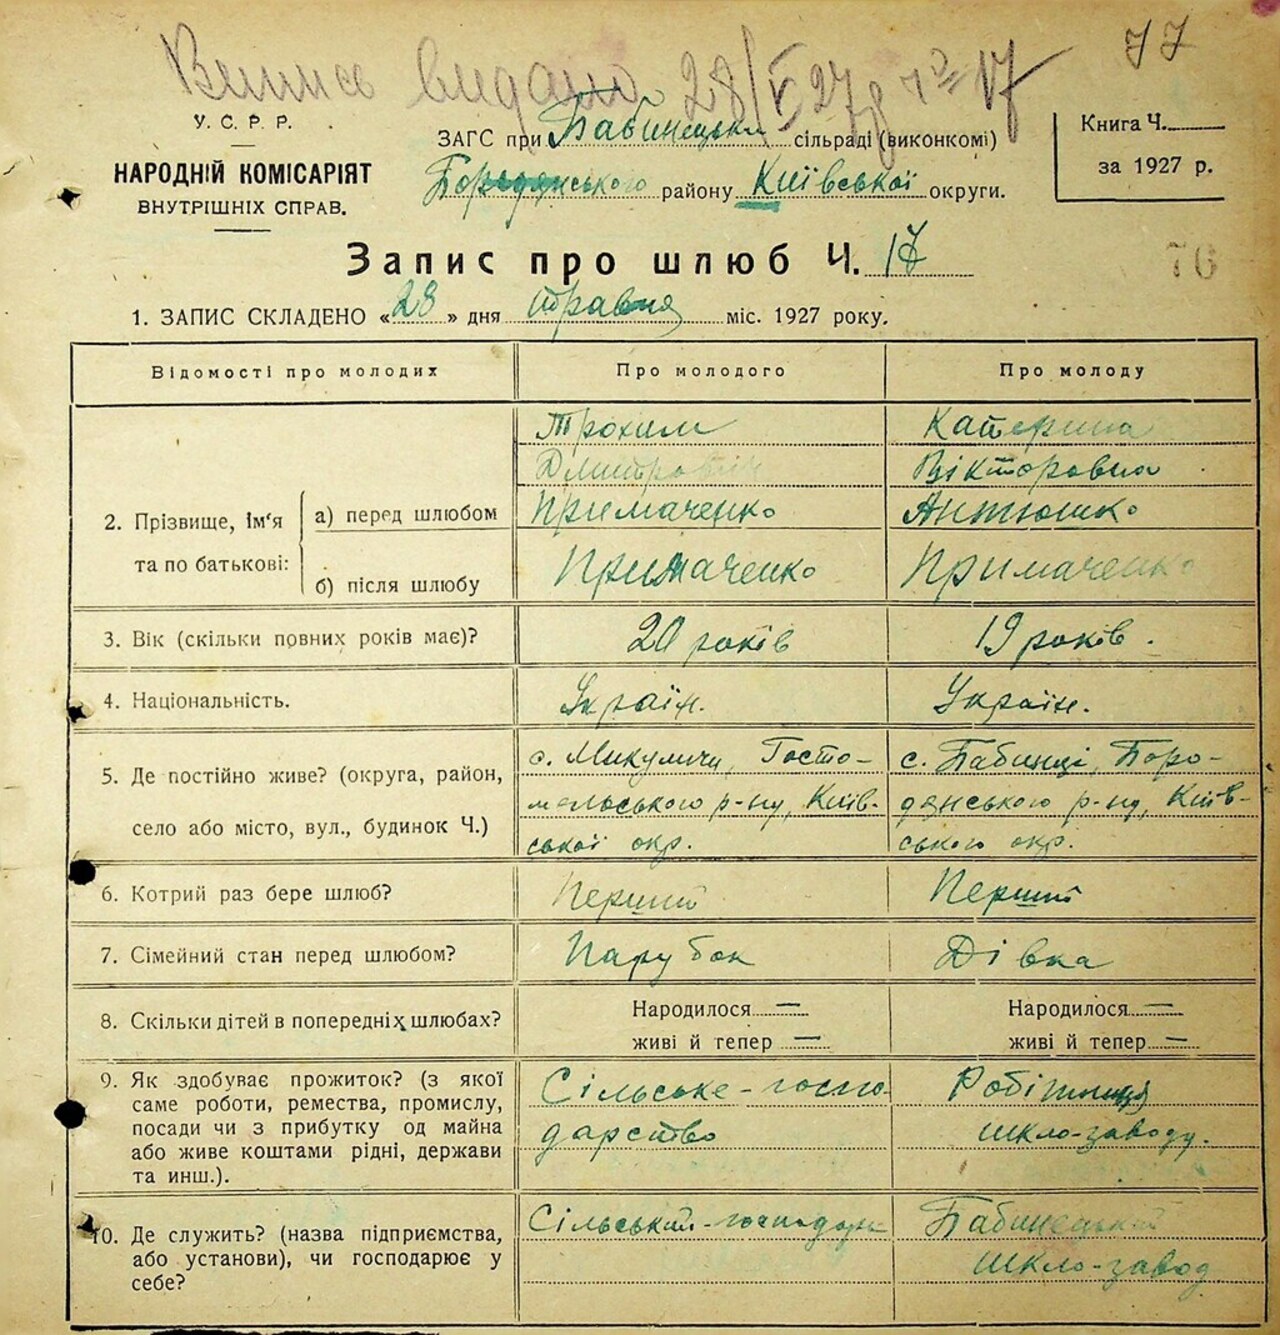 77
Випись видано 28/V 27 р. № 17
У. С. Р. Р.
НАРОДНІЙ КОМІСАРІЯТ
ВНУТРІШНІХ СПРАВ.
ЗАГС при Бабинецькій сільраді (виконкомі)
Бородянського району Київської округи.
Книга Ч.
за 1927 р.
Запис про шлюб Ч. 17
76
1. ЗАПИС СКЛАДЕНО «28» дня травня міс. 1927 року.
Відомості про молодих
Про молодого
Про молоду
2. Прізвище, ім'я
та по батькові:
а) перед шлюбом
б) після шлюбу
Трохим
Дмитрович
Примаченко
Примаченко
Катерина
Вікторовна
Антюшко
Примаченко
3. Вік (скільки повних років має)?
20 років
19 років.
4. Національність.
Україн.
Україн.
5. Де постійно живе? (округа, район,
село або місто, вул., будинок Ч.)
с. Микуличи, Госто-
мельського р-ну, Київ-
ської окр.
с. Бабинці, Боро-
дянського р-ну, Київ-
ського окр.
6. Котрий раз бере шлюб?
Перший
Перший
7. Сімейний стан перед шлюбом?
Парубок
Дівка
8. Скільки дітей в попередніх шлюбах?
Народилося —
живі й тепер —
Народилося —
живі й тепер —
9. Як здобуває прожиток? (з якої
саме роботи, ремества, промислу,
посади чи з прибутку од майна
або живе коштами рідні, держави
та инш.).
Сільське-госпо-
дарство
Робітниця
шкло-заводу.
10. Де служить? (назва підприємства,
або установи), чи господарює у
себе?
Сільський-господар
Бабинецький
шкло-завод